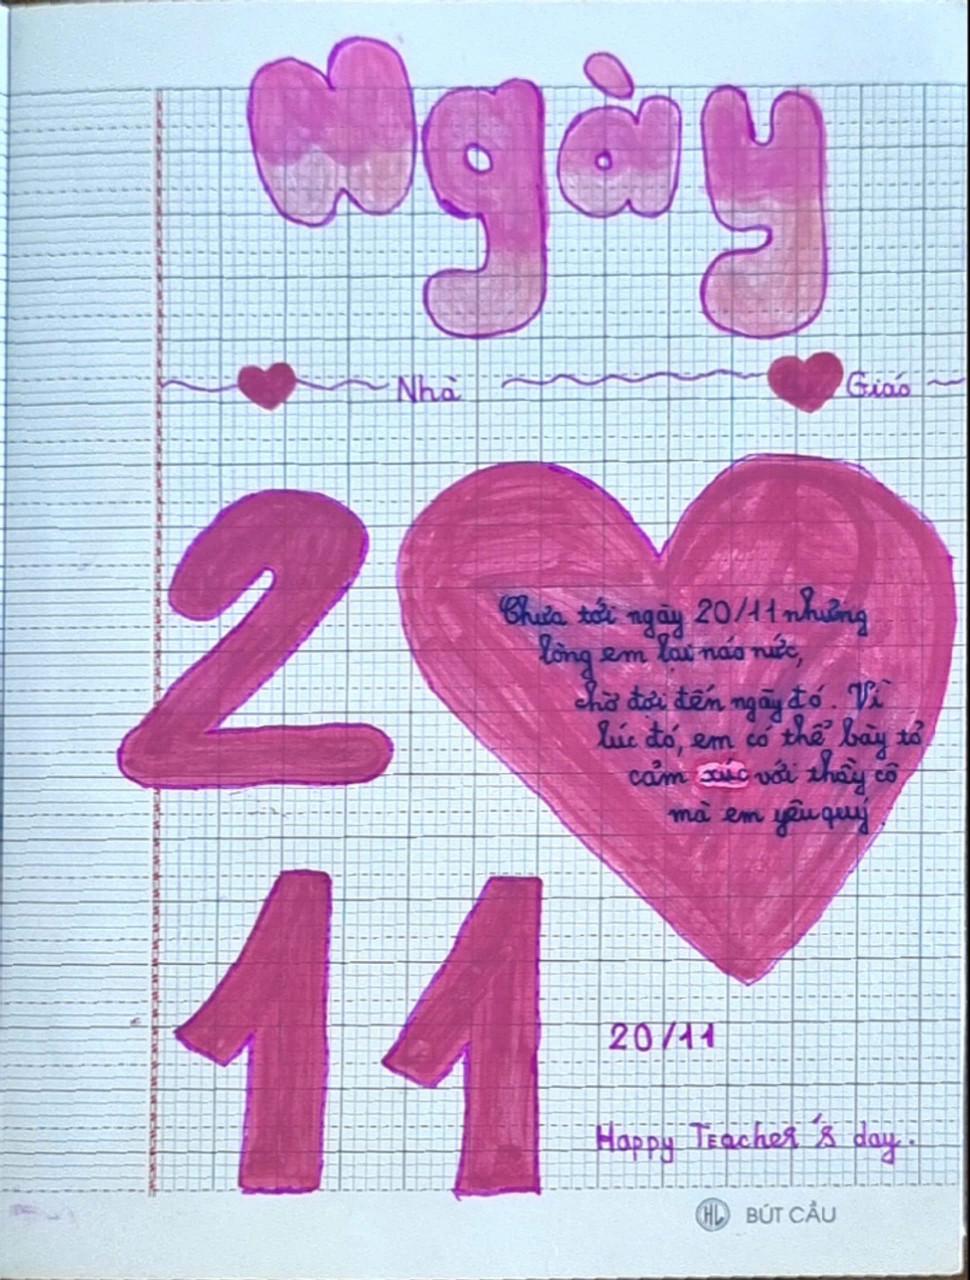 Ngày
Nhà Giáo
2
Chưa tới ngày 20/11 nhưng
lòng em lại náo nức,
chờ đợi đến ngày đó. Vì
lúc đó, em có thể bày tỏ
cảm xúc với thầy cô
mà em yêu quý
11
20/11
Happy Teacher's day.
HL BÚT CẦU